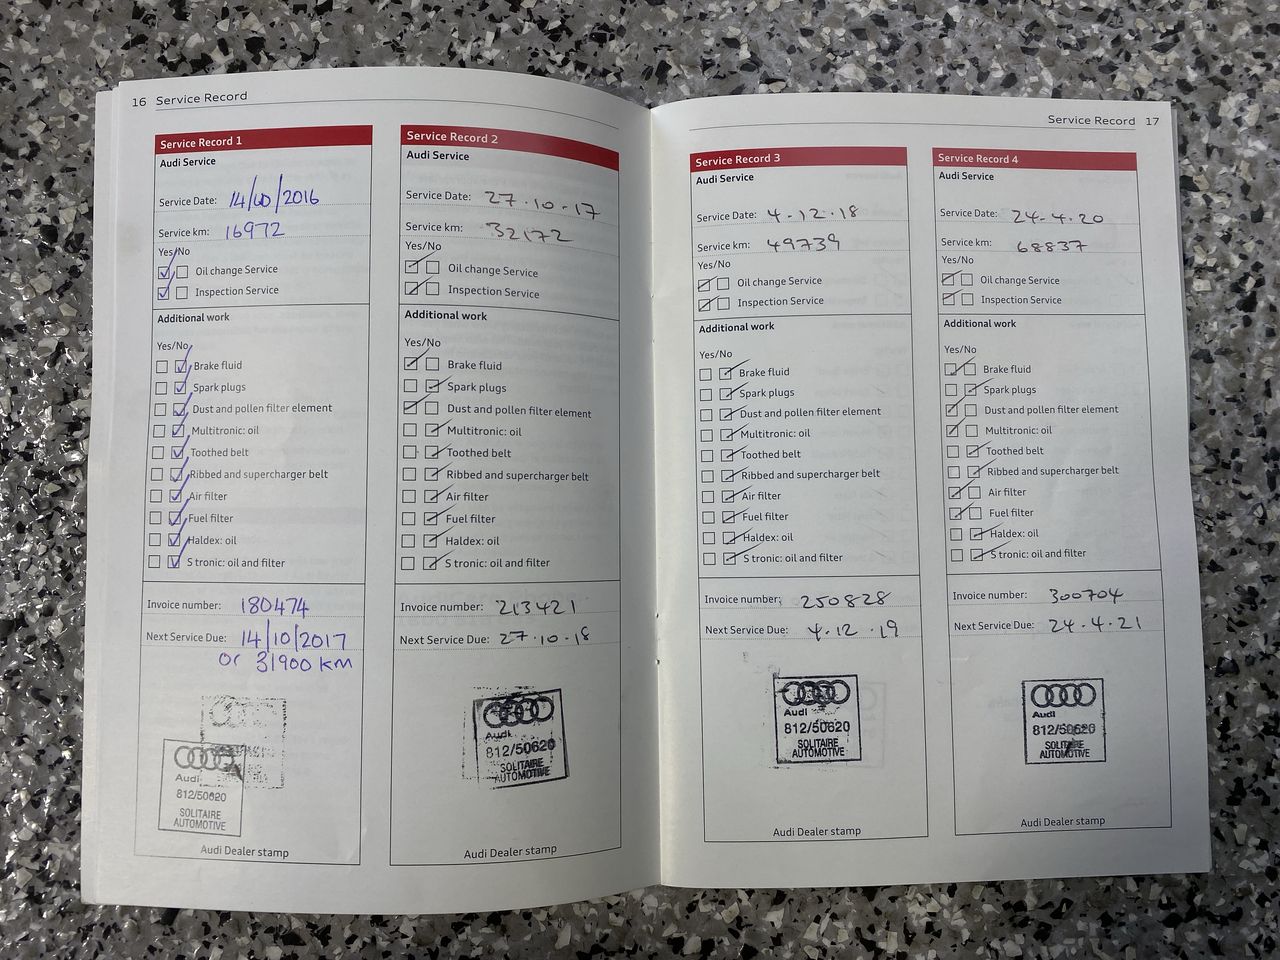 16 Service Record
Service Record 1
Audi Service
Service Date: 14/10/2016
Service km: 16972
Yes/No
Oil change Service
Inspection Service
Additional work
Yes/No
Brake fluid
Spark plugs
Dust and pollen filter element
Multitronic: oil
Toothed belt
Ribbed and supercharger belt
Air filter
Fuel filter
Haldex: oil
S tronic: oil and filter
Invoice number: 180474
Next Service Due: 14/10/2017
or 31900 km
Audi
812/50620
SOLITAIRE
AUTOMOTIVE
Audi Dealer stamp
Service Record 2
Audi Service
Service Date: 27.10-17
Service km: 32172
Yes/No
Oil change Service
Inspection Service
Additional work
Yes/No
Brake fluid
Spark plugs
Dust and pollen filter element
Multitronic: oil
Toothed belt
Ribbed and supercharger belt
Air filter
Fuel filter
Haldex: oil
S tronic: oil and filter
Invoice number: 213421
Next Service Due: 27.10.18
Audi
812/50620
SOLITAIRE
AUTOMOTIVE
Audi Dealer stamp
Service Record 17
Service Record 3
Audi Service
Service Date: 4.12.18
Service km: 49739
Yes/No
Oil change Service
Inspection Service
Additional work
Yes/No
Brake fluid
Spark plugs
Dust and pollen filter element
Multitronic: oil
Toothed belt
Ribbed and supercharger belt
Air filter
Fuel filter
Haldex: oil
S tronic: oil and filter
Invoice number: 250828
Next Service Due: 4.12.19
Audi
812/50620
SOLITAIRE
AUTOMOTIVE
Audi Dealer stamp
Service Record 4
Audi Service
Service Date: 24.4.20
Service km: 68837
Yes/No
Oil change Service
Inspection Service
Additional work
Yes/No
Brake fluid
Spark plugs
Dust and pollen filter element
Multitronic: oil
Toothed belt
Ribbed and supercharger belt
Air filter
Fuel filter
Haldex: oil
S tronic: oil and filter
Invoice number: 300704
Next Service Due: 24.4.21
Audi
812/50620
SOLITAIRE
AUTOMOTIVE
Audi Dealer stamp